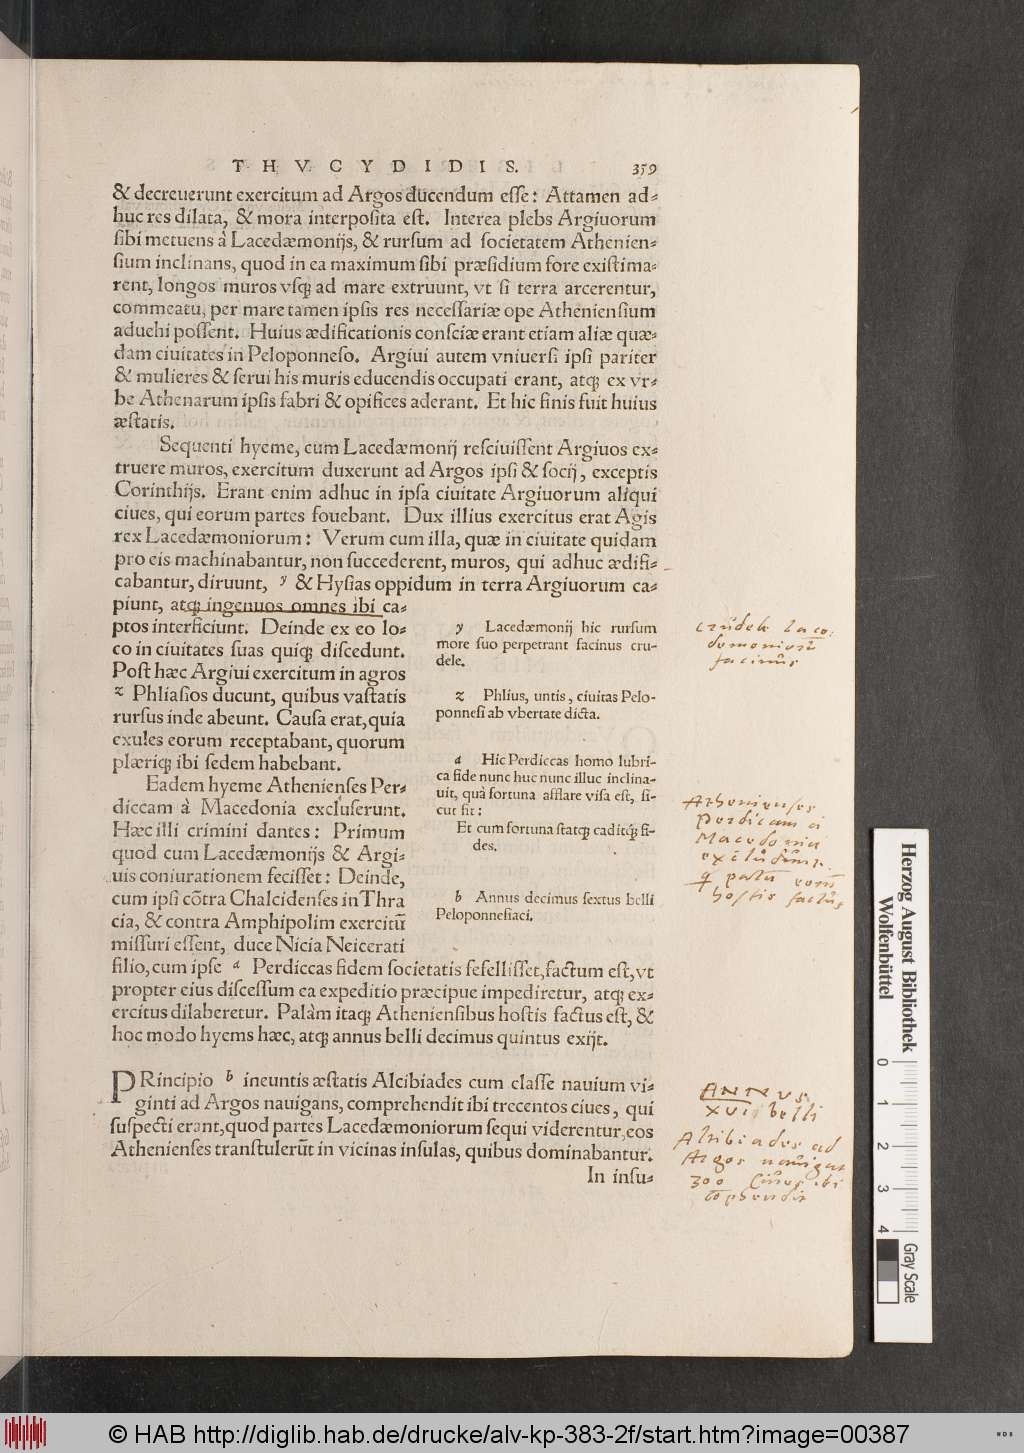 THVCYDIDIS. 359
& decreuerunt exercitum ad Argos ducendum esse: Attamen ad⸗
huc res dilata, & mora interposita est. Interea plebs Argiuorum
sibi metuens à Lacedæmonijs, & rursum ad societatem Athenien⸗
sium inclinans, quod in ea maximum sibi præsidium fore existima⸗
rent, longos muros vsq; ad mare extruunt, vt si terra arcerentur,
commeatu, per mare tamen ipsis res necessariæ ope Atheniensium
aduehi possent. Huius ædificationis consciæ erant etiam aliæ quæ⸗
dam ciuitates in Peloponneso. Argiui autem vniuersi ipsi pariter
& mulieres & serui his muris educendis occupati erant, atq; ex vr⸗
be Athenarum ipsis fabri & opifices aderant. Et hic finis fuit huius
æstatis.
Sequenti hyeme, cum Lacedæmonij resciuissent Argiuos ex⸗
truere muros, exercitum duxerunt ad Argos ipsi & socij, exceptis
Corinthijs. Erant enim adhuc in ipsa ciuitate Argiuorum aliqui
ciues, qui eorum partes fouebant. Dux illius exercitus erat Agis
rex Lacedæmoniorum: Verum cum illa, quæ in ciuitate quidam
pro eis machinabantur, non succederent, muros, qui adhuc ædifi⸗
cabantur, diruunt, y & Hysias oppidum in terra Argiuorum ca⸗
piunt, atq; ingenuos omnes ibi ca⸗
ptos interficiunt. Deinde ex eo lo⸗
co in ciuitates suas quiq; discedunt.
Post hæc Argiui exercitum in agros
z Phliasios ducunt, quibus vastatis
rursus inde abeunt. Causa erat, quia
exules eorum receptabant, quorum
plæriq; ibi sedem habebant.
Eadem hyeme Athenienses Per⸗
diccam à Macedonia excluserunt.
Hæc illi crimini dantes: Primum
quod cum Lacedæmonijs & Argi⸗
uis coniurationem fecisset: Deinde,
cum ipsi cõtra Chalcidenses in Thra
cia, & contra Amphipolim exercitũ
missuri essent, duce Nicia Neicerati
filio, cum ipse a Perdiccas fidem societatis fefellisset, factum est, vt
propter eius discessum ea expeditio præcipue impediretur, atq; ex⸗
ercitus dilaberetur. Palàm itaq; Atheniensibus hostis factus est, &
hoc modo hyems hæc, atq; annus belli decimus quintus exijt.
y Lacedæmonij hic rursum
more suo perpetrant facinus cru⸗
dele.
z Phlius, untis, ciuitas Pelo⸗
ponnesi ab vbertate dicta.
a Hic Perdiccas homo lubri⸗
ca fide nunc huc nunc illuc inclina⸗
uit, quà fortuna afflare visa est, si⸗
cut fit:
Et cum fortuna statq; caditq́; fi⸗
des.
b Annus decimus sextus belli
Peloponnesiaci.
PRincipio b ineuntis æstatis Alcibiades cum classe nauium vi⸗
ginti ad Argos nauigans, comprehendit ibi trecentos ciues, qui
suspecti erant, quod partes Lacedæmoniorum sequi viderentur, eos
Athenienses transtulerũt in vicinas insulas, quibus dominabantur.
In insu⸗
Crudele Laco:
facinus
Athenienses
Perdicam à
Macedonia
hostis factus
ANNUS
XVI belli
Alcibiades ad
Argos navigat
300 Cives ibi
Herzog August Bibliothek
Wolfenbüttel
0 1 2 3 4
Gray Scale
© HAB http://diglib.hab.de/drucke/alv-kp-383-2f/start.htm?image=00387